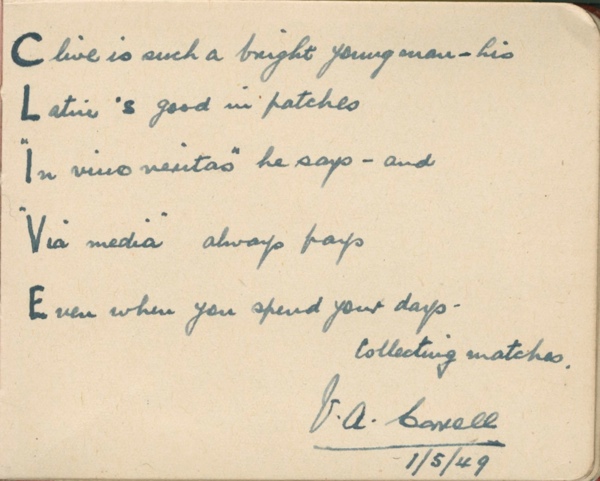 Clive is such a bright young man - his
Latin 's good in patches
"In vino veritas" he says - and
"Via media" always pays
Even when you spend your days -
Collecting matches.
V. A.
1/5/49